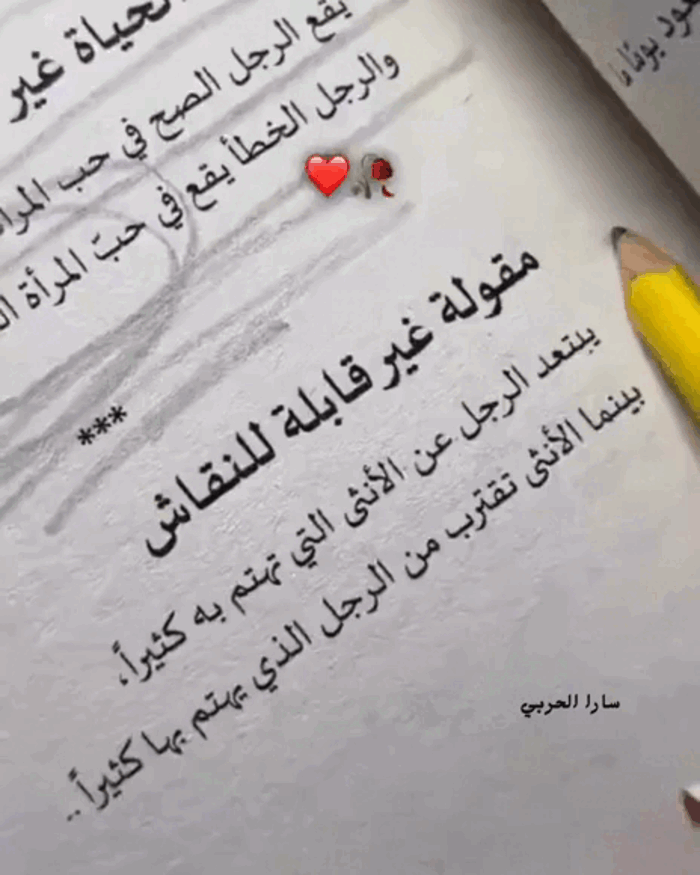 الحياة غير
يقع الرجل الصح في حب
والرجل الخطأ يقع في حبّ المرأة
***
مقولة غير قابلة للنقاش
يبتعد الرجل عن الأنثى التي تهتم به كثيراً،
بينما الأنثى تقترب من الرجل الذي يهتم بها كثيراً..
سارا الحربي